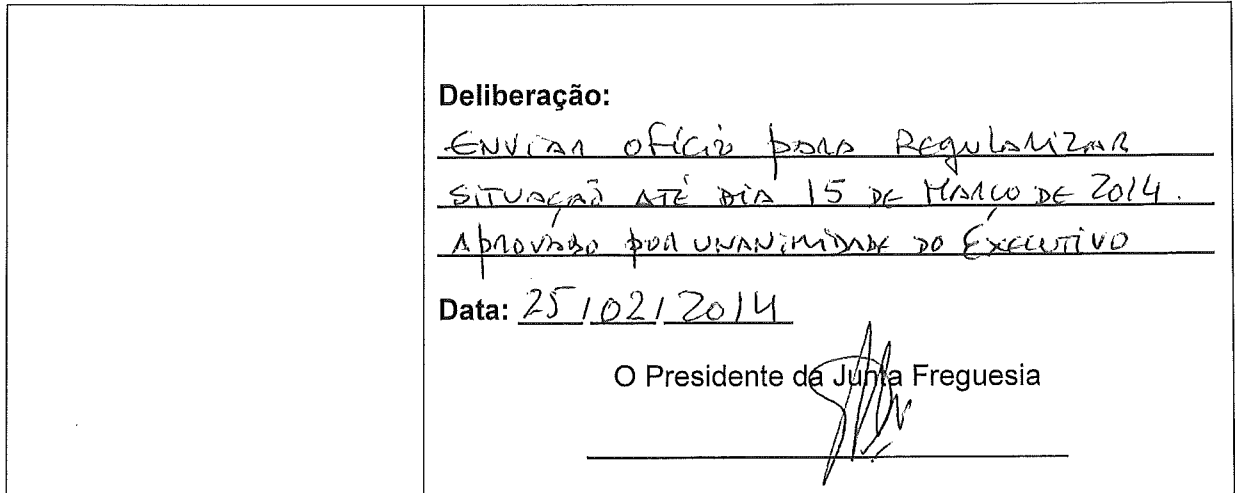 Deliberação:
Enviar ofício para Regularizar
situação até dia 15 de Março de 2014.
Aprovado por unanimidade do Executivo
Data: 25/02/2014
O Presidente da Junta Freguesia